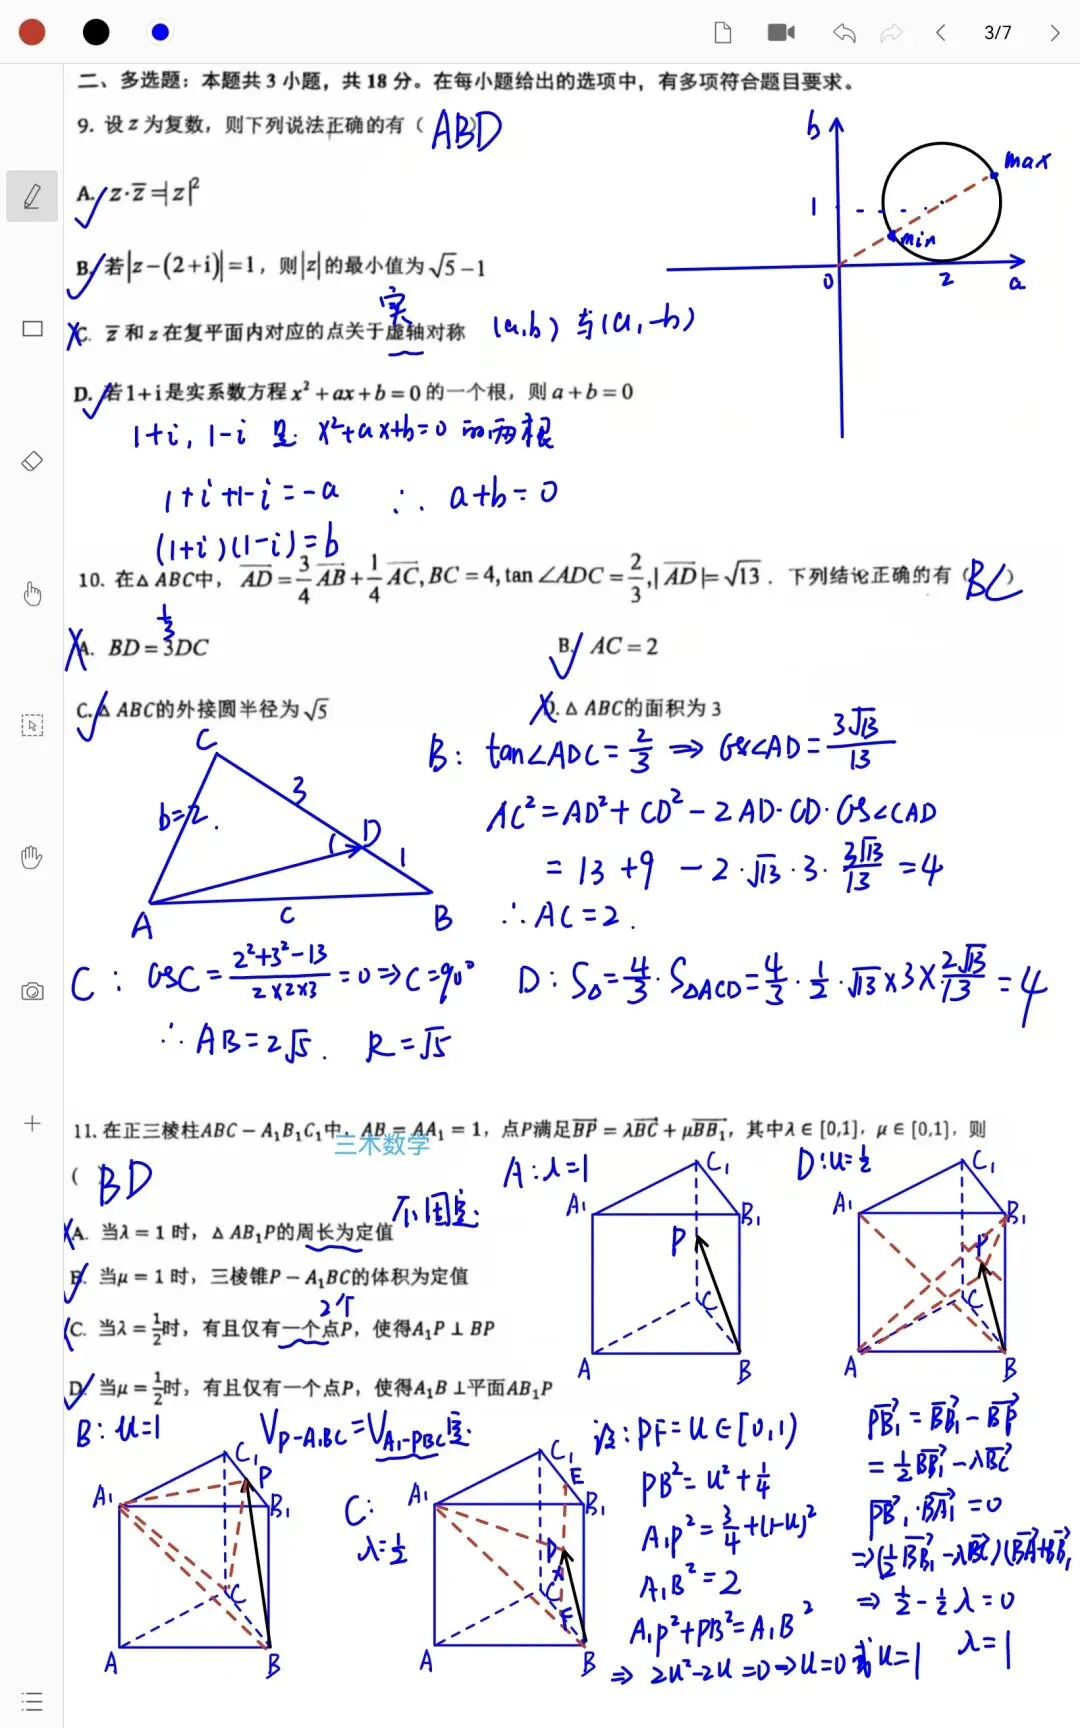 3/7
二、多选题：本题共 3 小题，共 18 分。在每小题给出的选项中，有多项符合题目要求。
9. 设 z 为复数，则下列说法正确的有（ ABD
A. z·z̅=|z|²
B. 若|z−(2+i)|=1，则|z|的最小值为√5−1
实
C. z̅ 和 z 在复平面内对应的点关于虚轴对称 (a,b) 与(a,-b)
D. 若1+i是实系数方程 x²+ax+b=0 的一个根，则 a+b=0
b
max
1
min
0
2
a
1+i, 1-i 是 x²+ax+b=0 的两根
1+i+1-i=-a ∴ a+b=0
(1+i)(1-i)=b
10. 在△ABC中，AD→=3/4 AB→+1/4 AC→, BC=4, tan∠ADC=2/3, |AD→|=√13．下列结论正确的有（BC）
1/3
A. BD=3DC
B. AC=2
C. △ABC的外接圆半径为√5
D. △ABC的面积为3
C
3
b=2
D
1
A
c
B
B: tan∠ADC=2/3 ⇒ cos∠AD=3√13/13
AC²=AD²+CD²-2AD·CD·cos∠CAD
=13+9-2·√13·3·3√13/13=4
∴AC=2.
C: cosC=(2²+3²-13)/(2×2×3)=0⇒C=90°
∴AB=2√5. R=√5
D: S△=4/3·S△ACD=4/3·1/2·√13×3×2√13/13=4
11. 在正三棱柱ABC−A₁B₁C₁中，AB=AA₁=1，点P满足BP→=λBC→+μBB₁→，其中λ∈[0,1]，μ∈[0,1]，则
三木数学
( BD
不固定
A. 当λ=1时，△AB₁P的周长为定值
B. 当μ=1时，三棱锥P−A₁BC的体积为定值
2个
C. 当λ=1/2时，有且仅有一个点P，使得A₁P⊥BP
D. 当μ=1/2时，有且仅有一个点P，使得A₁B⊥平面AB₁P
A: λ=1
C₁
A₁
B₁
P
C
A
B
D: u=1/2
C₁
A₁
B₁
P
C
A
B
B: u=1 V_P-A₁BC=V_A₁-PBC定
C₁
P
A₁
B₁
C
A
B
C:
λ=1/2
C₁
E
A₁
B₁
P
C
F
A
B
设: PF=u∈[0,1)
PB²=u²+1/4
A₁P²=3/4+(1-u)²
A₁B²=2
A₁P²+PB²=A₁B²
⇒2u²-2u=0⇒u=0或u=1
PB₁→=BB₁→-BP→
=1/2BB₁→-λBC→
PB₁→·BA₁→=0
⇒(1/2BB₁→-λBC→)(BA→+BB₁→
⇒1/2-1/2λ=0
λ=1